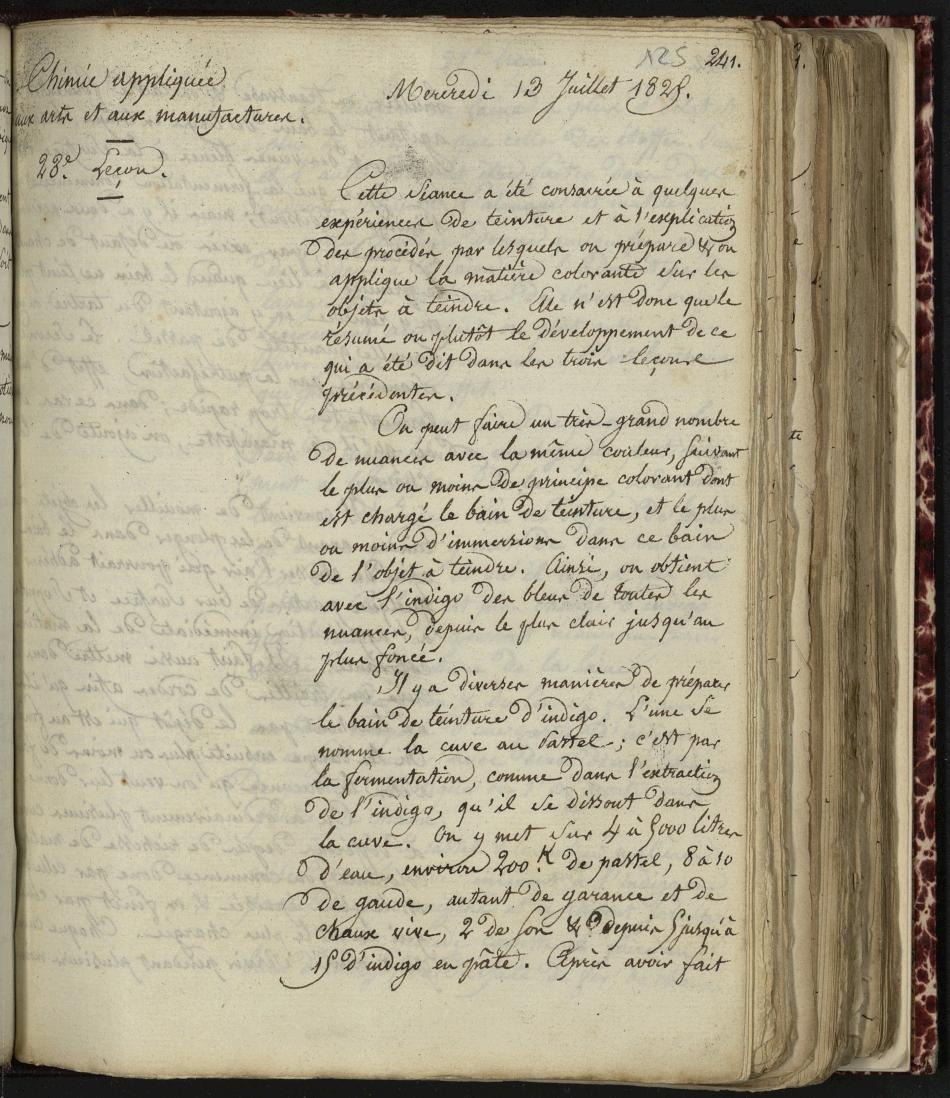 125 241.
Chimie appliquée
aux arts et aux manufactures.
Mercredi 13 Juillet 1825.
28.e Leçon.
Cette séance a été consacrée à quelques
expériences de teinture et à l'explication
des procédés par lesquels on prépare & on
applique la matière colorante sur les
objets à teindre. Elle n'est donc que le
résumé ou plutôt le développement de ce
qui a été dit dans les trois leçons
précédentes.
On peut faire un très-grand nombre
de nuances avec la même couleur, suivant
le plus ou moins de principe colorant dont
est chargé le bain de teinture, et le plus
ou moins d'immersions dans ce bain
de l'objet à teindre. Ainsi, on obtient
avec l'indigo des bleus de toutes les
nuances, depuis le plus clair jusqu'au
plus foncé.
Il y a diverses manières de préparer
le bain de teinture d'indigo. L'une se
nomme la cuve au pastel ; c'est par
la fermentation, comme dans l'extraction
de l'indigo, qu'il se dissout dans
la cuve. On y met sur 4 à 5000 litres
d'eau, environ 200.K de pastel, 8 à 10
de gaude, autant de garance et de
chaux vive, 2 de son & depuis 5 jusqu'à
15 d'indigo en pâte. Après avoir fait